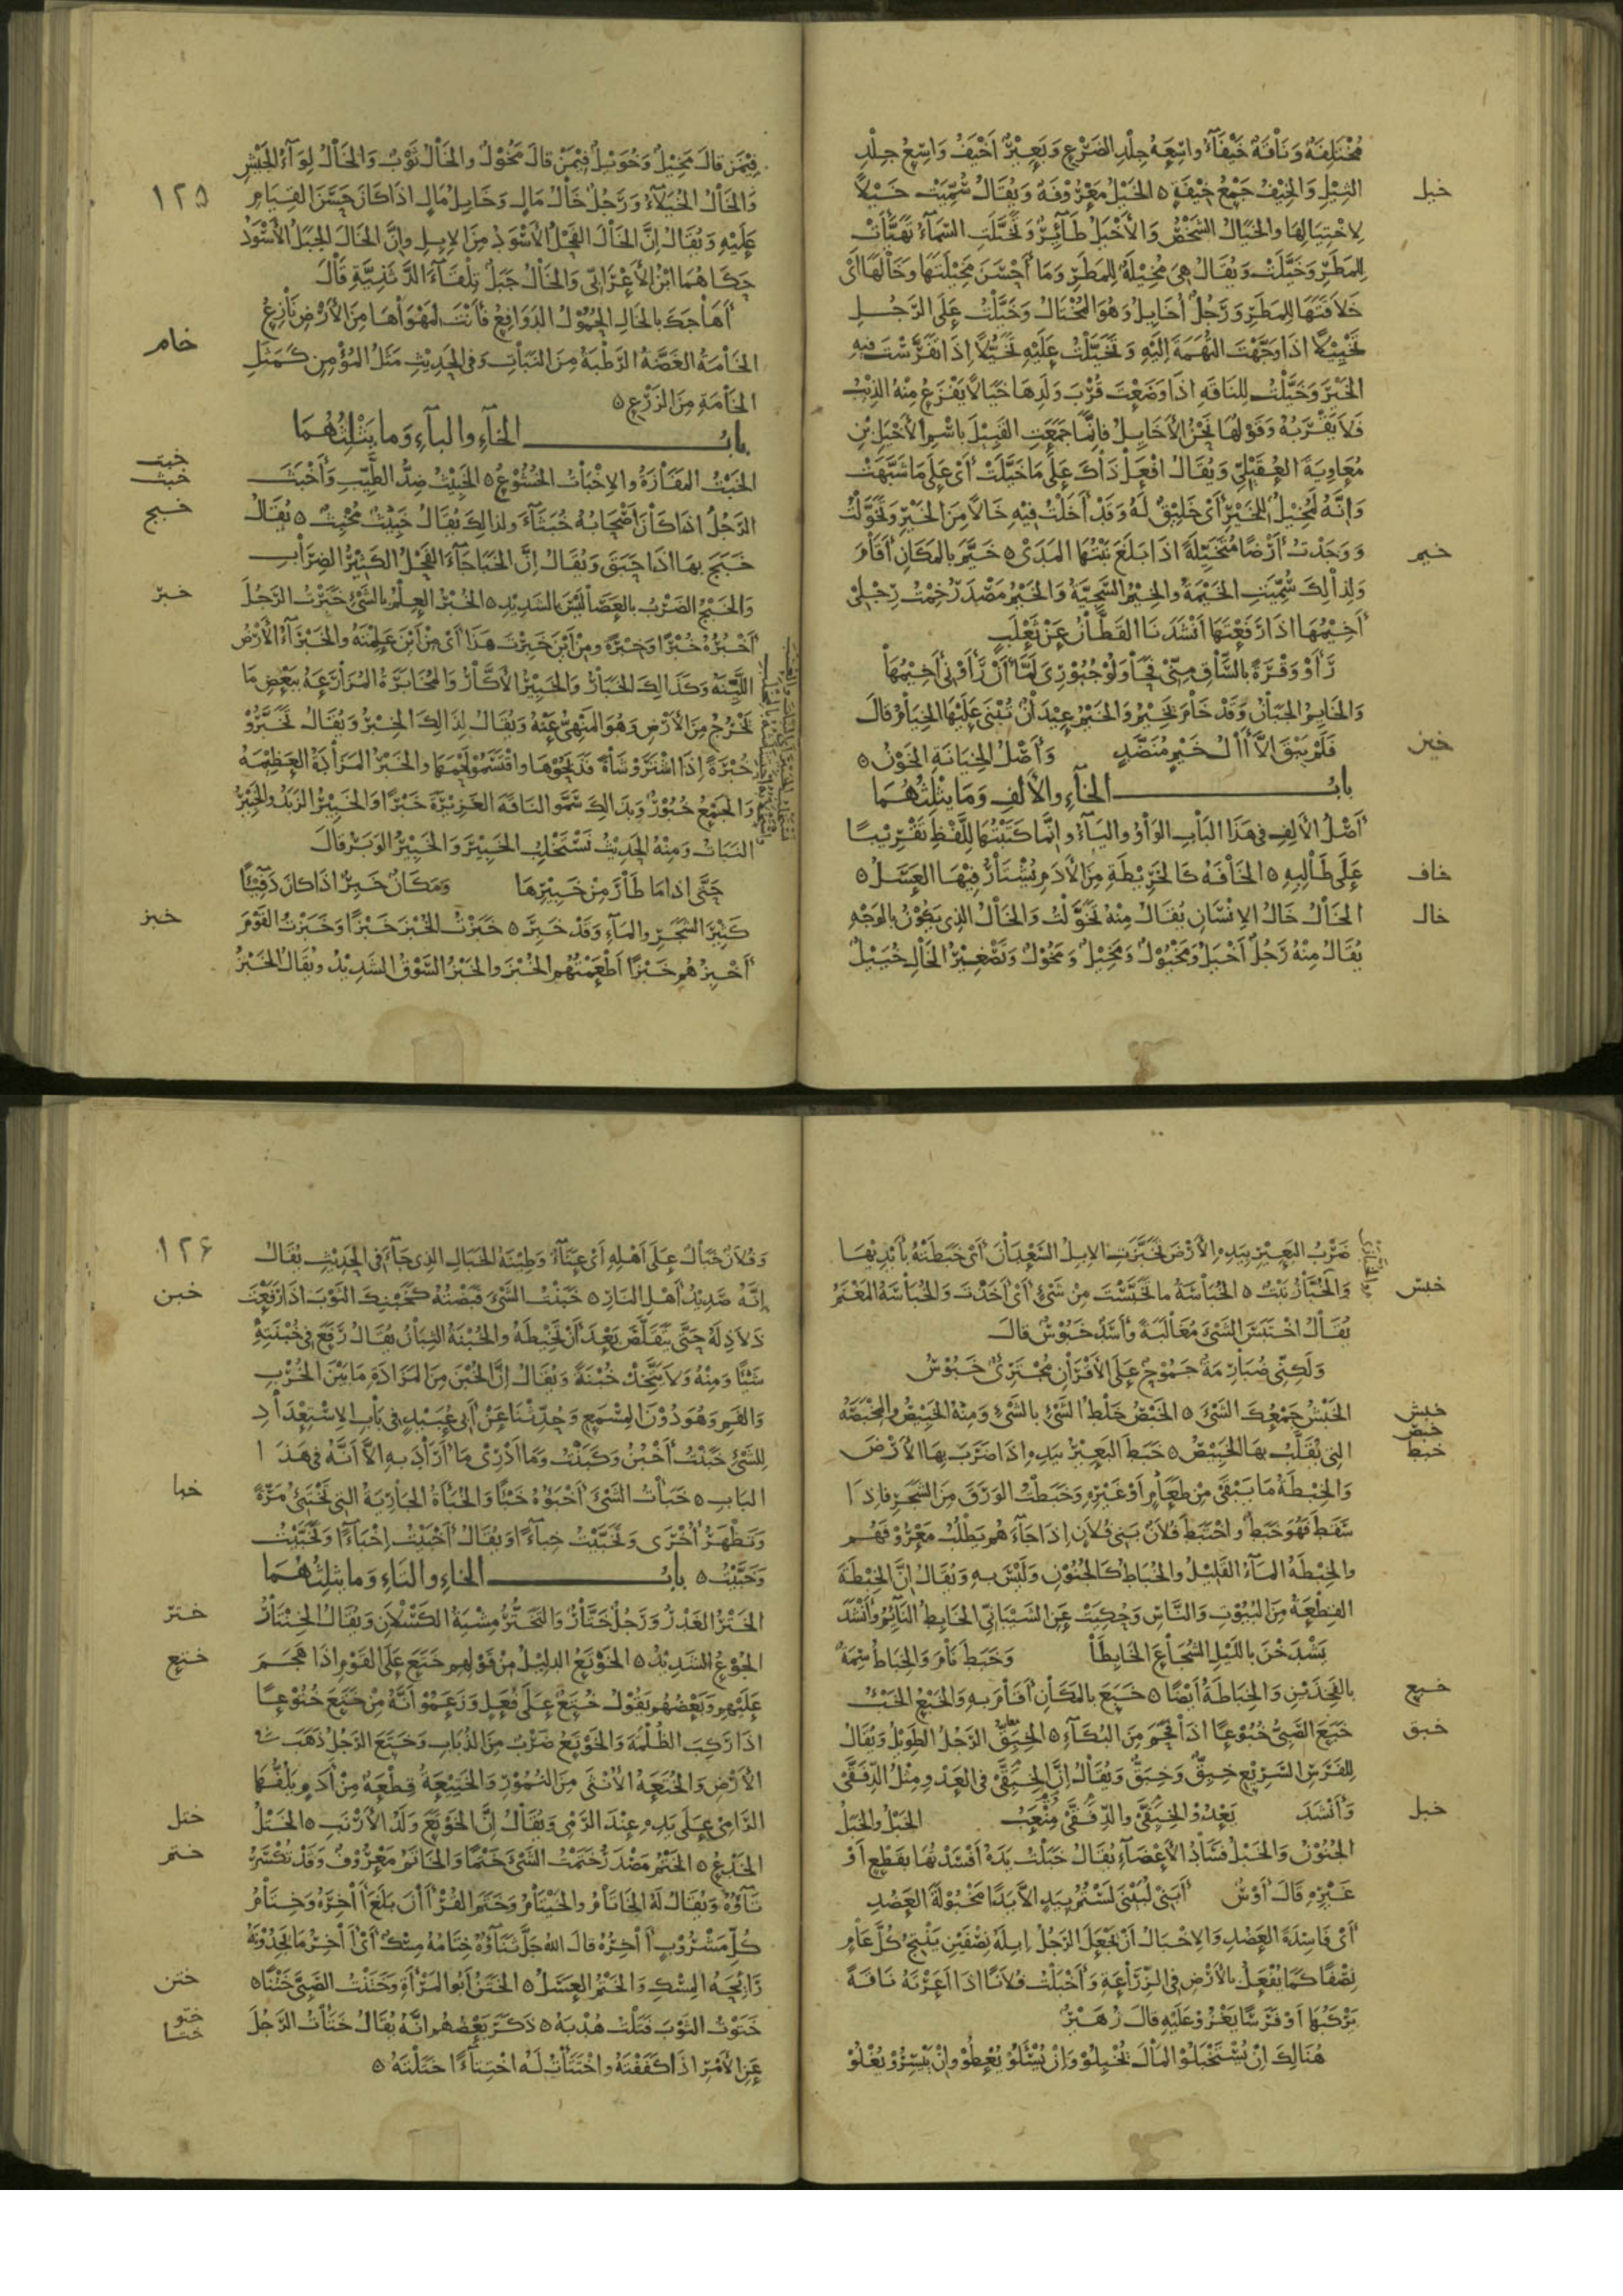 مختلفة وناقة خيفاء واسعة جلد الضرع وبعير أخيف واسع جلد
خيل
الثيل والخيف جمع خيفة ٥ الخيل معروفة ويقال سميت خيلا
لاختيالها والخيال الشخص والأخيل طائر وتخيلت السماء تهيأت
للمطر وخيلت ويقال هي مخيلة للمطر وما أحسن مخيلتها وخالها أي
خلاقتها للمطر ورجل أخايل وهو المختال وخيلت على الرجل
تخييلا اذا وجهت التهمة إليه وتخيلت عليه تخيلا إذا تفرست فيه
الخير وخيلت للناقة اذا وضعت قرب ولدها خيالا يفزع منه الذئب
فلا يقربه وقولها نحن الأخايل فانما جمعت القبيل باسم الأخيل بن
معاوية العقيلي ويقال افعل ذاك على ما خيلت أي على ما شبهت
وإنه لمخيل للخير أي خليق له وقد أخلت فيه خالا من الخير وتخولت
خيم
ووجدت أرضا متخيلة اذا بلغ نبتها المدى ٥ خيم بالمكان أقام
ولذلك سميت الخيمة والخيم السجية والخيم مصدر خمت رجلي
أخيمها اذا رفعتها أنشدنا القطان عن ثعلب
رأوا وقرة بالساق مني فحاولوا جبوري لما أن رأوني أخيمها
والخايم الجبان وقد خام يخيم والخيم عيدان تبنى عليها الخيام قال
خين
فلم يبق الا أال خيم منضد وأصل الخيانة الخون ٥
باب الخاء والألف وما يثلثهما
أصل الألف في هذا الباب الواو والياء وانما كتبتها للفظ تقريبا
خاف
على طالبه ٥ الخافة كالخريطة من الأدم يشتار فيها العسل ٥
خال
الخال خال الانسان يقال منه تخولت والخال الذي يكون بالوجه
يقال منه رجل أخيل ومخيول ومخيل ومخول وتصغير الخال خييل
فيمن قال مخيل وخويل فيمن قال مخول والخال ثوب والخال لواء الجيش
١٢٥
والخال الخيلاء ورجل خال مال وخايل مال اذا كان حسن القيام
عليه ويقال ان الخال الفحل الأسود من الابل وان الخال الجبل الأسود
حكاهما ابن الأعرابي والخال جبل تلقاء الدثنية قال
أهاجك بالخال الحمول الدوافع فأنت لمهواها من الأرض نازع
خام
الخامة الغضة الرطبة من النبات وفي الحديث مثل المؤمن كمثل
الخامة من الزرع ٥
باب الخاء والباء وما يثلثهما
خبت
الخبت المفازة والاخبات الخشوع ٥ الخبيث ضد الطيب وأخبث
خبث
الرجل اذا كان أصحابه خبثاء ولذلك يقال خبيث مخبث ٥ يقال
خبج
خبج بها اذا حبق ويقال ان الخباجاء الفحل الكثير الضراب
خبر
والخبج الضرب بالعصا ليس بالشديد ٥ الخبر العلم بالشيء خبرت الرجل
أخبره خبرا وخبرة ومن أين خبرت هذا أي من أين علمته والخبراء الأرض
اللينة وكذلك الخبار والخبير الأكار والمخابرة المزارعة ببعض ما
تخرج من الأرض وهو المنهي عنه ويقال لذلك الخبر ويقال تخبروا
خبرة إذا اشتروا شاة فذبحوها واقتسموا لحمها والخبر المزادة العظيمة
والجمع خبور وبذلك سموا الناقة الغزيرة خبرا والخبير الزبد والخبير
النبات ومنه الحديث نستخلب الخبير والخبير الوبر قال
حتى اذا ما طار من خبيرها ومكان خبر اذا كان دفئا
خبز
كثير الشجر والماء وقد خبر ٥ خبزت الخبز خبزا وخبزت القوم
أخبزهم خبزا أطعمتهم الخبز والخبز السوق الشديد ويقال الخبز
ضرب البعير بيده الأرض تخبزت الابل السعدان أي خبطته بأيديها
خبس
والخباز نبت ٥ الخباسة ما تخبست من شيء أي أخذت والخباسة المغنم
يقال اختبس الشيء مغالبة وأسد خبوس قال
ولكني ضبارمة جموح على الأقران مجتري خبوس
خبش
الخبش جمعك الشيء ٥ الخبص خلط الشيء بالشيء ومنه الخبيص والمخبصة
خبص
خبط
التي يقلب بها الخبيص ٥ خبط البعير بيده اذا ضرب بها الأرض
والخبطة ما يبقى من طعام أو غيره وخبطت الورق من الشجر فاذا
سقط فهو خبط واختبط فلان بني فلان اذا جاءهم يطلب معروفهم
والخبطة الماء القليل والخباط كالجنون وليس به ويقال ان الخبطة
القطعة من البيوت والناس وحكيت عن الشيباني الخابط النائم وأنشد
يشدخن بالليل الشجاع الخابطا وخبط نام والخباط سمة
خبع
بالفخذين والخباطة أيضا ٥ خبع بالمكان أقام به والخبع الخبء
خبق
خبع الصبي خبوعا اذا فحم من البكاء ٥ الخبق الرجل الطويل ويقال
للفرس السريع خبق وخبق ويقال ان الخبقى في العدو مثل الدفقى
خبل
وأنشد يعدو الخبقى والدفقى منعب الخبل والخبل
الجنون والخبل فساد الأعضاء يقال خبلت يده أفسدتها بقطع أو
غيره قال أوس أبني لبينى لستم بيد الا يدا مخبولة العضد
أي فاسدة العضد والاخبال أن يجعل الرجل ابله نصفين ينتج كل عام
نصفا كما يفعل بالأرض في الزراعة وأخبلت فلانا اذا أعرته ناقة
يركبها أو فرسا يغزو عليه قال زهير
هنالك ان يستخبلوا المال يخبلوا وان يسئلوا يعطوا وان ييسروا يغلوا
وفلان خبال على أهله أي عناء وطينة الخبال الذي جاء في الحديث يقال
١٢٦
خبن
إنه صديد أهل النار ٥ خبنت الشيء قبضته كخبنك الثوب اذا رفعت
ذلاذله حتى يتقلص بعد أن تخيطه والخبنة الثبان يقال رفع في خبنته
شيئا ومنه ولا يتخذ خبنة ويقال ان الخبن من المزادة ما بين الخرب
والفم وهو دون المسمع وحدثنا عن أبي عبيد في باب الاستعداد
للشيء خبنت أخبن وكبنت وما أدري ما أراد به الا أنه في هذا
خبا
الباب ٥ خبأت الشيء أخبؤه خبئا والخبأة الجارية التي تختبئ مرة
وتظهر أخرى وتخبيت خباء ويقال أخبيت إخباء وتخبيت
وخبيت ٥ باب الخاء والتاء وما يثلثهما
ختر
الختر الغدر ورجل ختار والتختر مشية الكسلان ويقال الختار
ختع
الجوع الشديد ٥ الخوتع الدليل من قولهم ختع على القوم اذا هجم
عليهم وبعضهم يقول ختع على فعل وزعموا أنه من ختع ختوعا
اذا ركب الظلمة والخوتع ضرب من الذباب وختع الرجل ذهب في
الأرض والختعة الأنثى من النمور والختيعة قطعة من أدم يلفها
ختل
الرامي على يده عند الرمي ويقال ان الخوتع ولد الأرنب ٥ الختل
ختم
الخدع ٥ الختم مصدر ختمت الشيء ختما والخاتم معروف وقد تكسر
تاؤه ويقال له الخاتام والخيتام وختم القرأان بلغ أاخره وختام
كل مشروب أاخره قال الله جل ثناؤه ختامه مسك أي أاخر ما يجدونه
ختن
رائحة المسك والختم العسل ٥ الختن أبو المرأة وختنت الصبي ختنا ٥
ختو
ختوت الثوب فتلت هدبه ٥ ذكر بعضهم انه يقال ختأت الرجل
ختا
عن الأمر اذا كففته واختتأت له اختتاء اختلته ٥